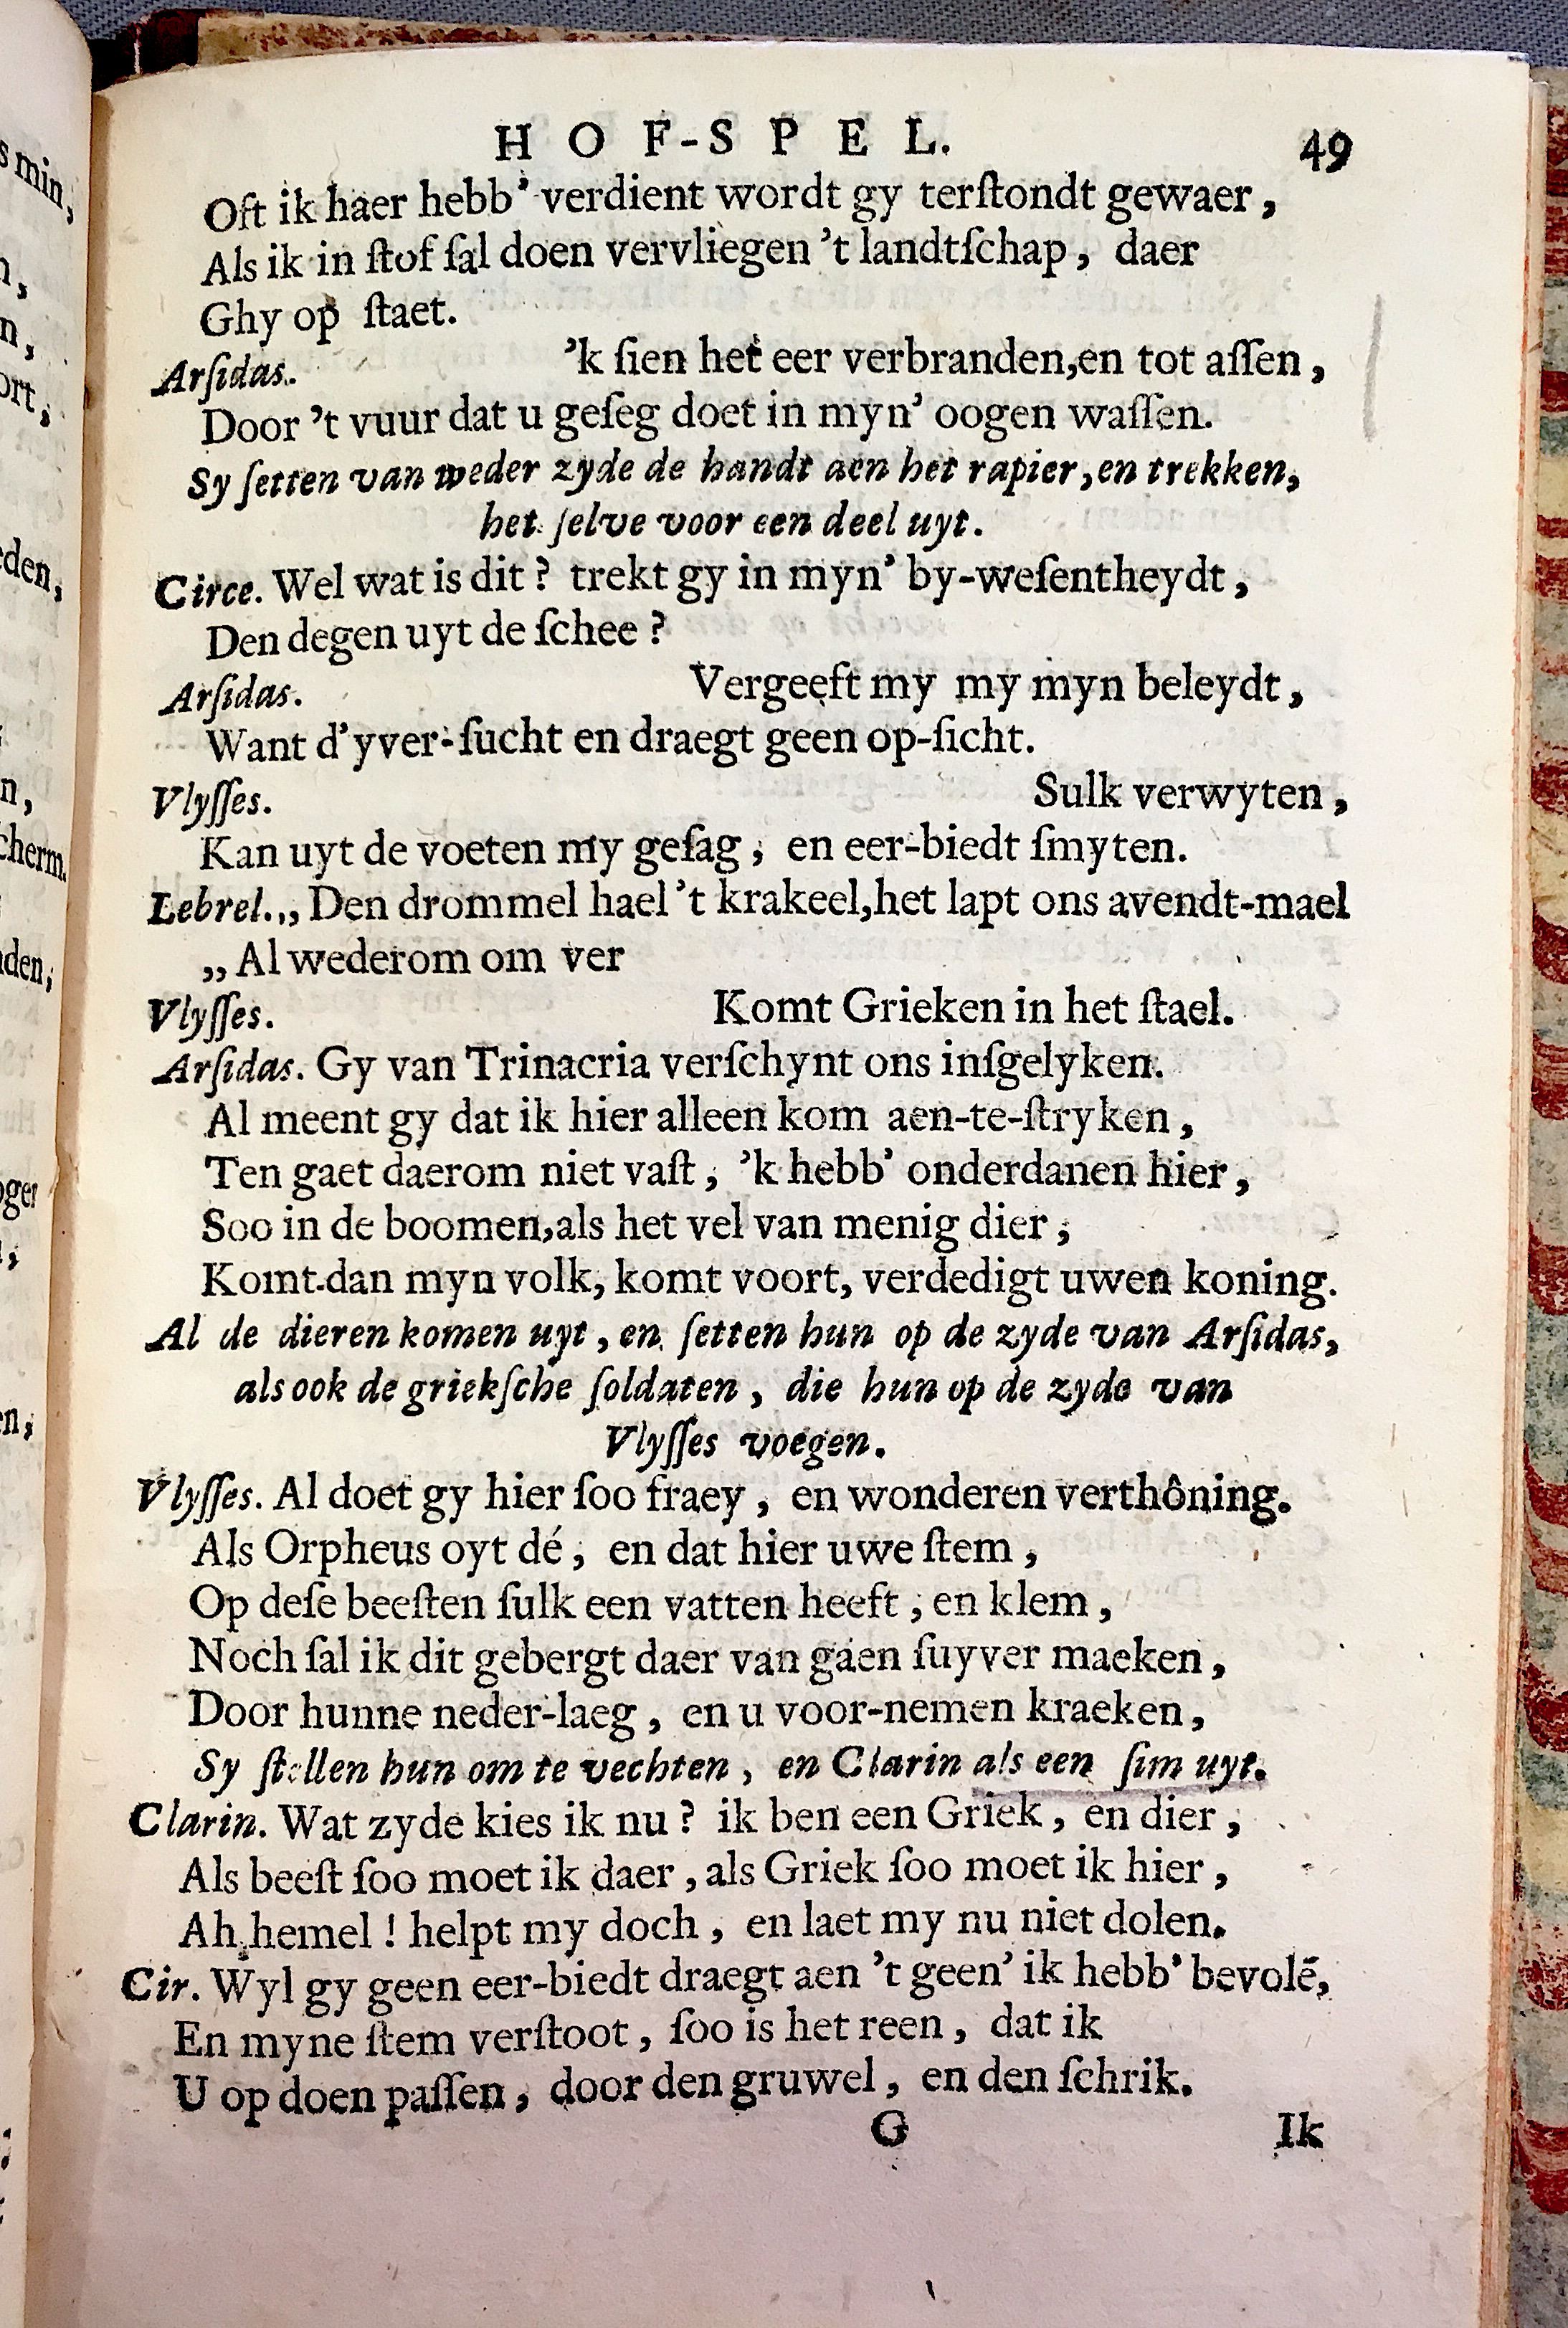 HOF-SPEL. 49
Oft ik haer hebb' verdient wordt gy terſtondt gewaer,
Als ik in ſtof ſal doen vervliegen 't landtſchap, daer
Ghy op ſtaet.
Arſidas. 'k ſien het eer verbranden,en tot aſſen,
Door 't vuur dat u geſeg doet in myn' oogen waſſen.
Sy ſetten van weder zyde de handt aen het rapier,en trekken,
het ſelve voor een deel uyt.
Circe. Wel wat is dit? trekt gy in myn' by-weſentheydt,
Den degen uyt de ſchee?
Arſidas. Vergeeft my my myn beleydt,
Want d'yver-ſucht en draegt geen op-ſicht.
Vlyſſes. Sulk verwyten,
Kan uyt de voeten my geſag, en eer-biedt ſmyten.
Lebrel.,, Den drommel hael 't krakeel,het lapt ons avendt-mael
,, Al wederom om ver
Vlyſſes. Komt Grieken in het ſtael.
Arſidas. Gy van Trinacria verſchynt ons inſgelyken.
Al meent gy dat ik hier alleen kom aen-te-ſtryken,
Ten gaet daerom niet vaſt, 'k hebb' onderdanen hier,
Soo in de boomen,als het vel van menig dier;
Komt dan myn volk, komt voort, verdedigt uwen koning.
Al de dieren komen uyt, en ſetten hun op de zyde van Arſidas,
als ook de griekſche ſoldaten, die hun op de zyde van
Vlyſſes voegen.
Vlyſſes. Al doet gy hier ſoo fraey, en wonderen verthôning.
Als Orpheus oyt dé, en dat hier uwe ſtem,
Op deſe beeſten ſulk een vatten heeft, en klem,
Noch ſal ik dit gebergt daer van gaen ſuyver maeken,
Door hunne neder-laeg, en u voor-nemen kraeken,
Sy ſtellen hun om te vechten, en Clarin als een ſim uyt.
Clarin. Wat zyde kies ik nu? ik ben een Griek, en dier,
Als beeſt ſoo moet ik daer, als Griek ſoo moet ik hier,
Ah hemel! helpt my doch, en laet my nu niet dolen.
Cir. Wyl gy geen eer-biedt draegt aen 't geen' ik hebb' bevolẽ,
En myne ſtem verſtoot, ſoo is het reen, dat ik
U op doen paſſen, door den gruwel, en den ſchrik.
G Ik